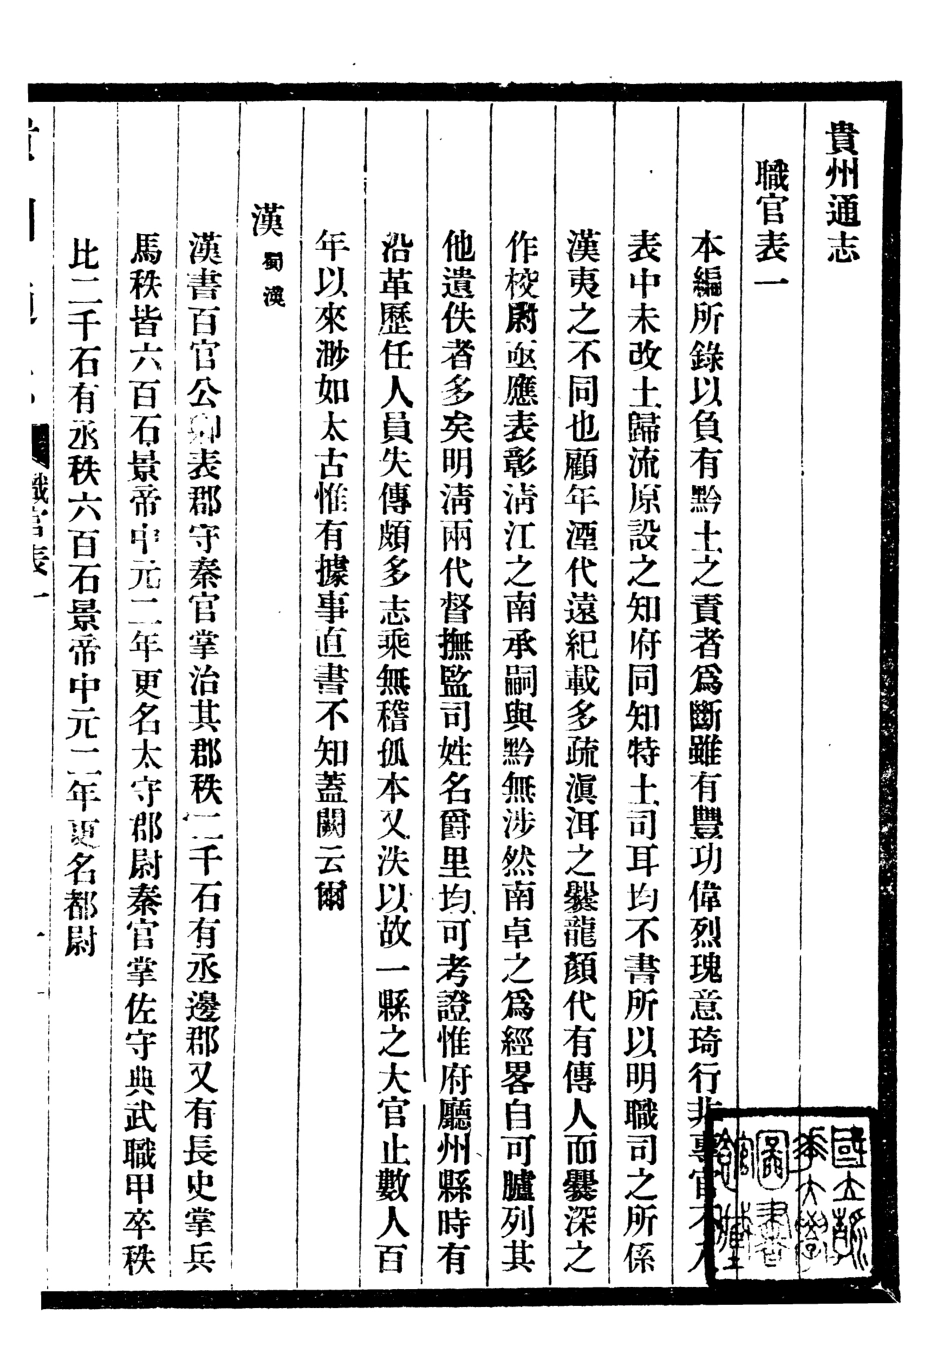 貴州通志
職官表一
本編所錄以負有黔土之責者爲斷雖有豐功偉烈瑰意琦行非專官不入
表中未改土歸流原設之知府同知特土司耳均不書所以明職司之所係
漢夷之不同也顧年湮代遠紀載多疏滇洱之爨龍顏代有傳人而爨深之
作校尉亟應表彰淸江之南承嗣與黔無涉然南卓之爲經畧自可臚列其
他遺佚者多矣明淸兩代督撫監司姓名爵里均可考證惟府廳州縣時有
沿革歷任人員失傳頗多志乘無稽孤本又泆以故一縣之大官止數人百
年以來渺如太古惟有據事直書不知蓋闕云爾
漢 蜀漢
漢書百官公卿表郡守秦官掌治其郡秩二千石有丞邊郡又有長史掌兵
馬秩皆六百石景帝中元二年更名太守郡尉秦官掌佐守典武職甲卒秩
比二千石有丞秩六百石景帝中元二年更名都尉
職官表一
國立清華大學圖書館藏